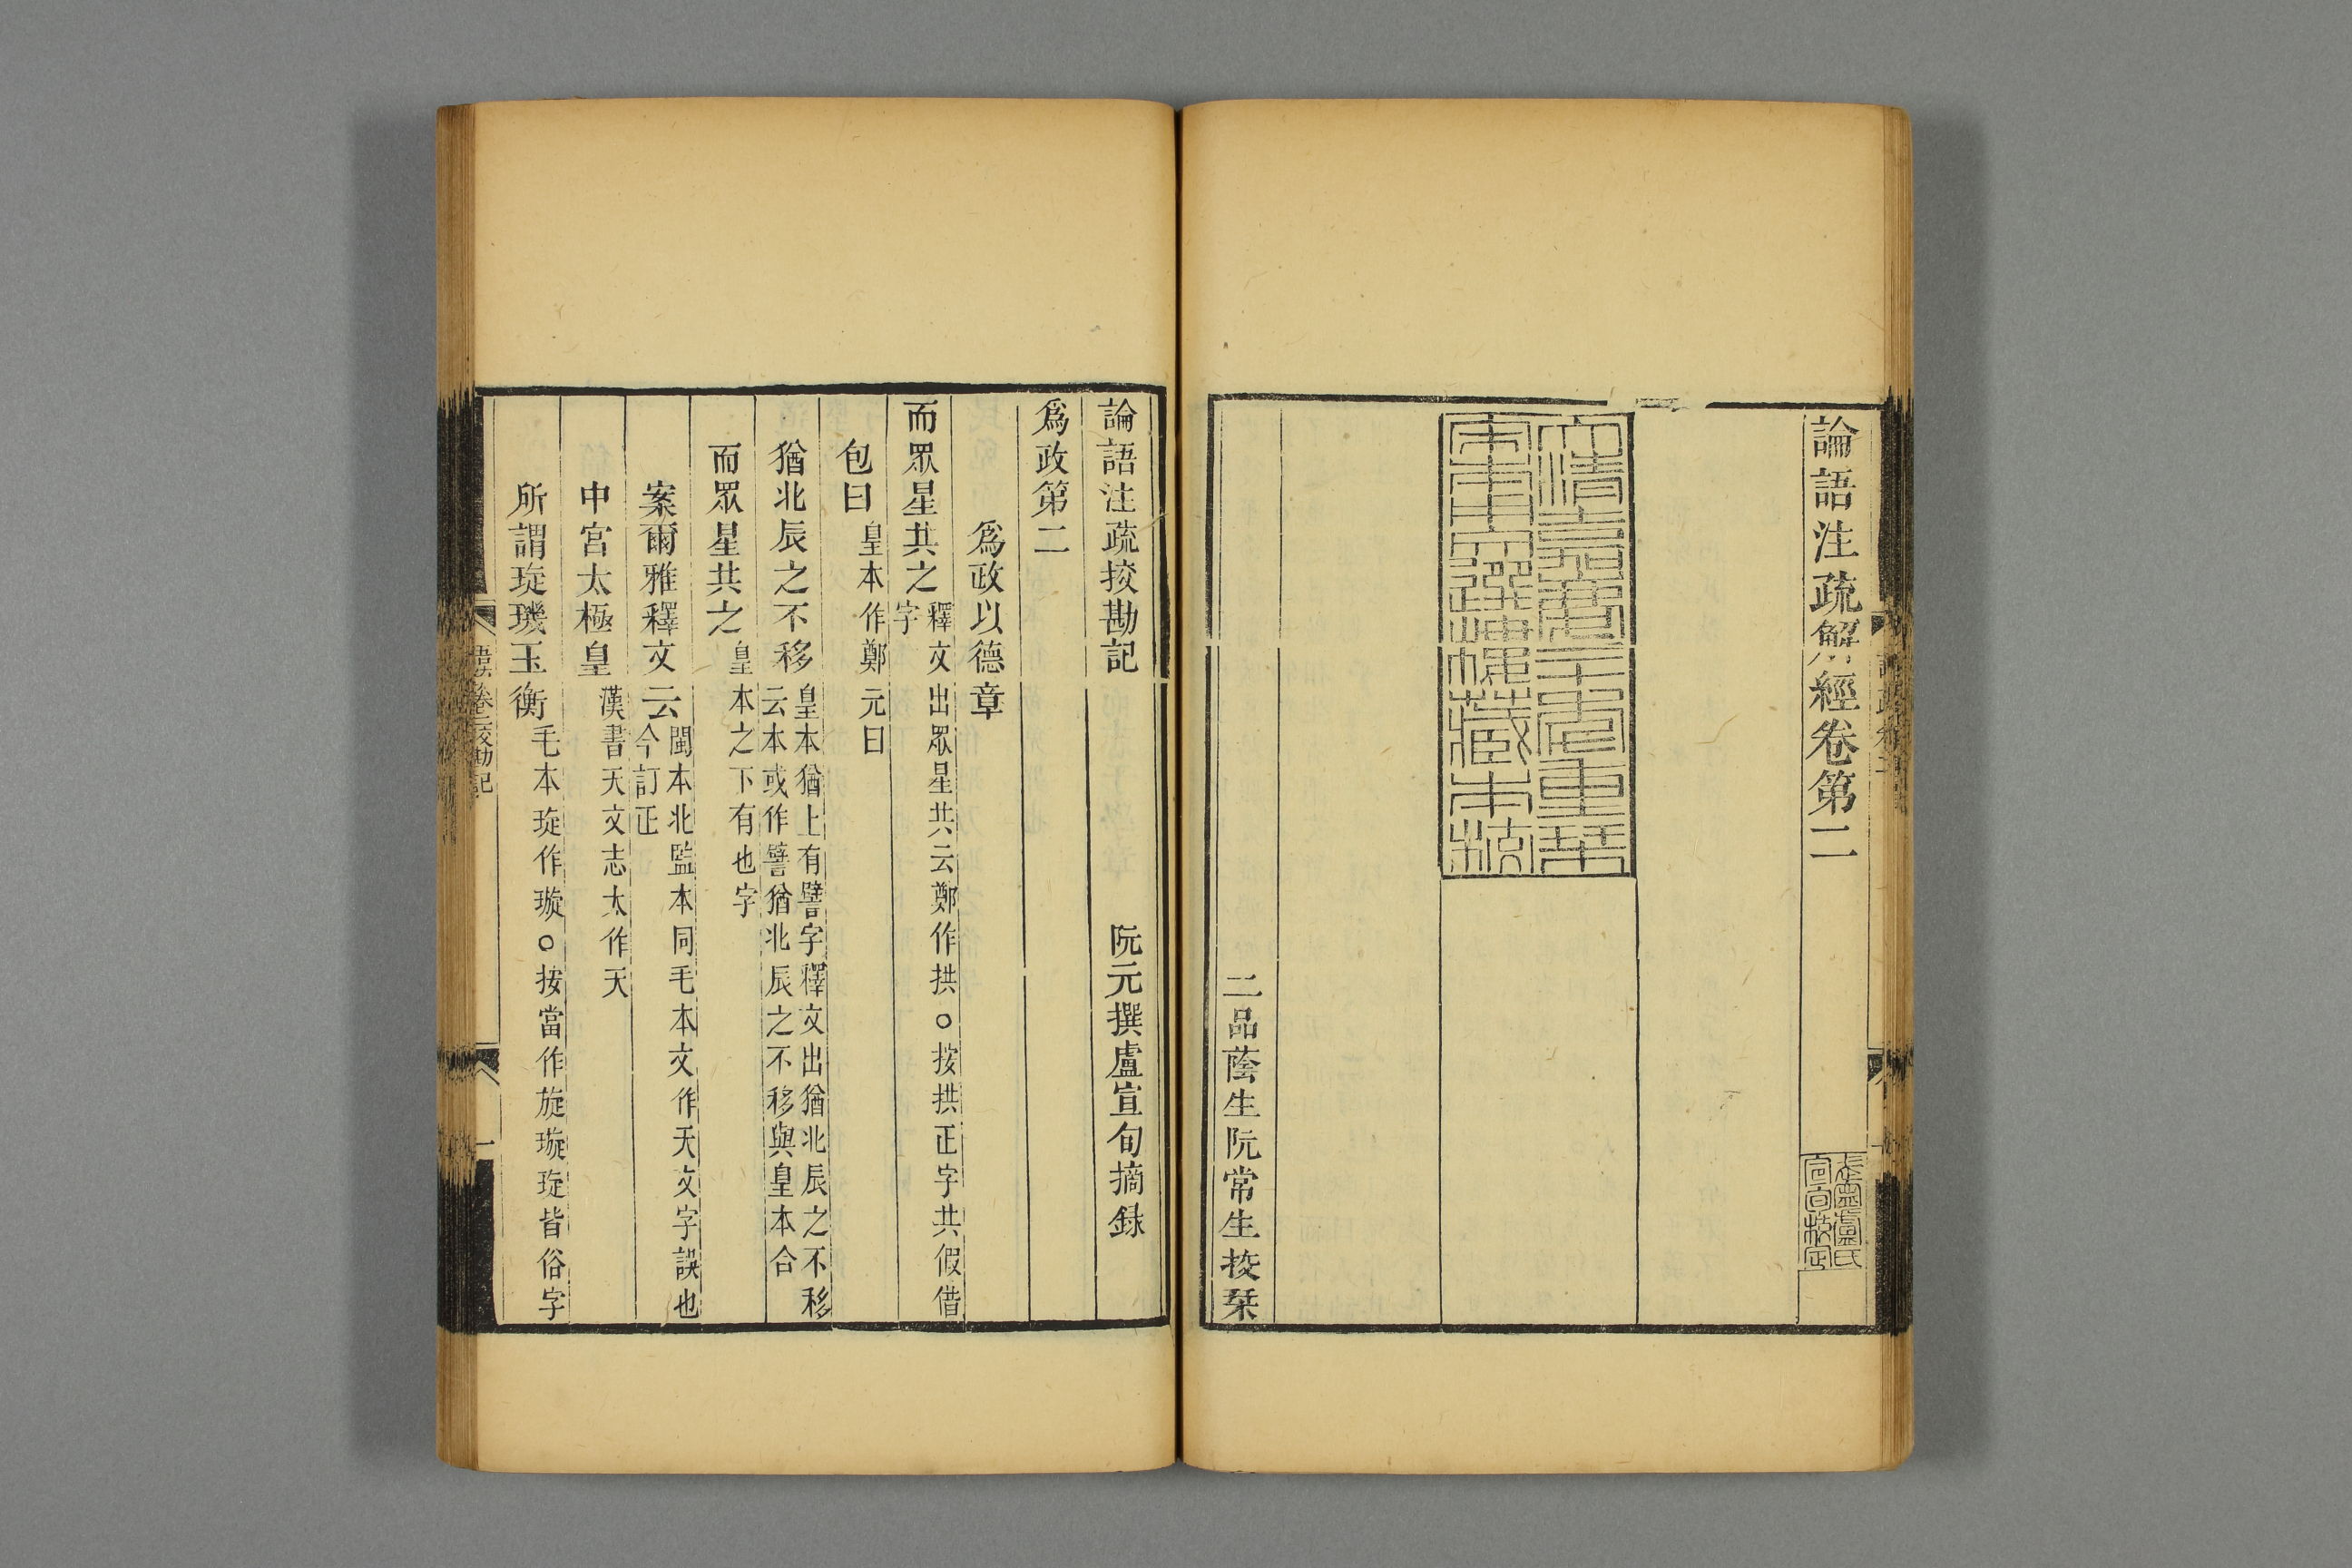 論語注疏解經卷第二
武寧盧氏
宣旬校定
大清嘉慶二十年重栞
宋本用文選樓藏本校
二品蔭生阮常生挍栞
論語注疏挍勘記 阮元撰盧宣旬摘録
爲政第二
爲政以德章
而眾星共之 釋文出眾星共云鄭作拱○按拱正字共假借字
包曰 皇本作鄭元曰
猶北辰之不移 皇本猶上有譬字釋文出猶北辰之不移云本或作譬猶北辰之不移與皇本合
而眾星共之 皇本之下有也字
案爾雅釋文云 閩本北監本同毛本文作天文字誤也今訂正
中宮太極皇 漢書天文志太作天
所謂琁璣玉衡 毛本琁作璇○按當作旋璇琁皆俗字